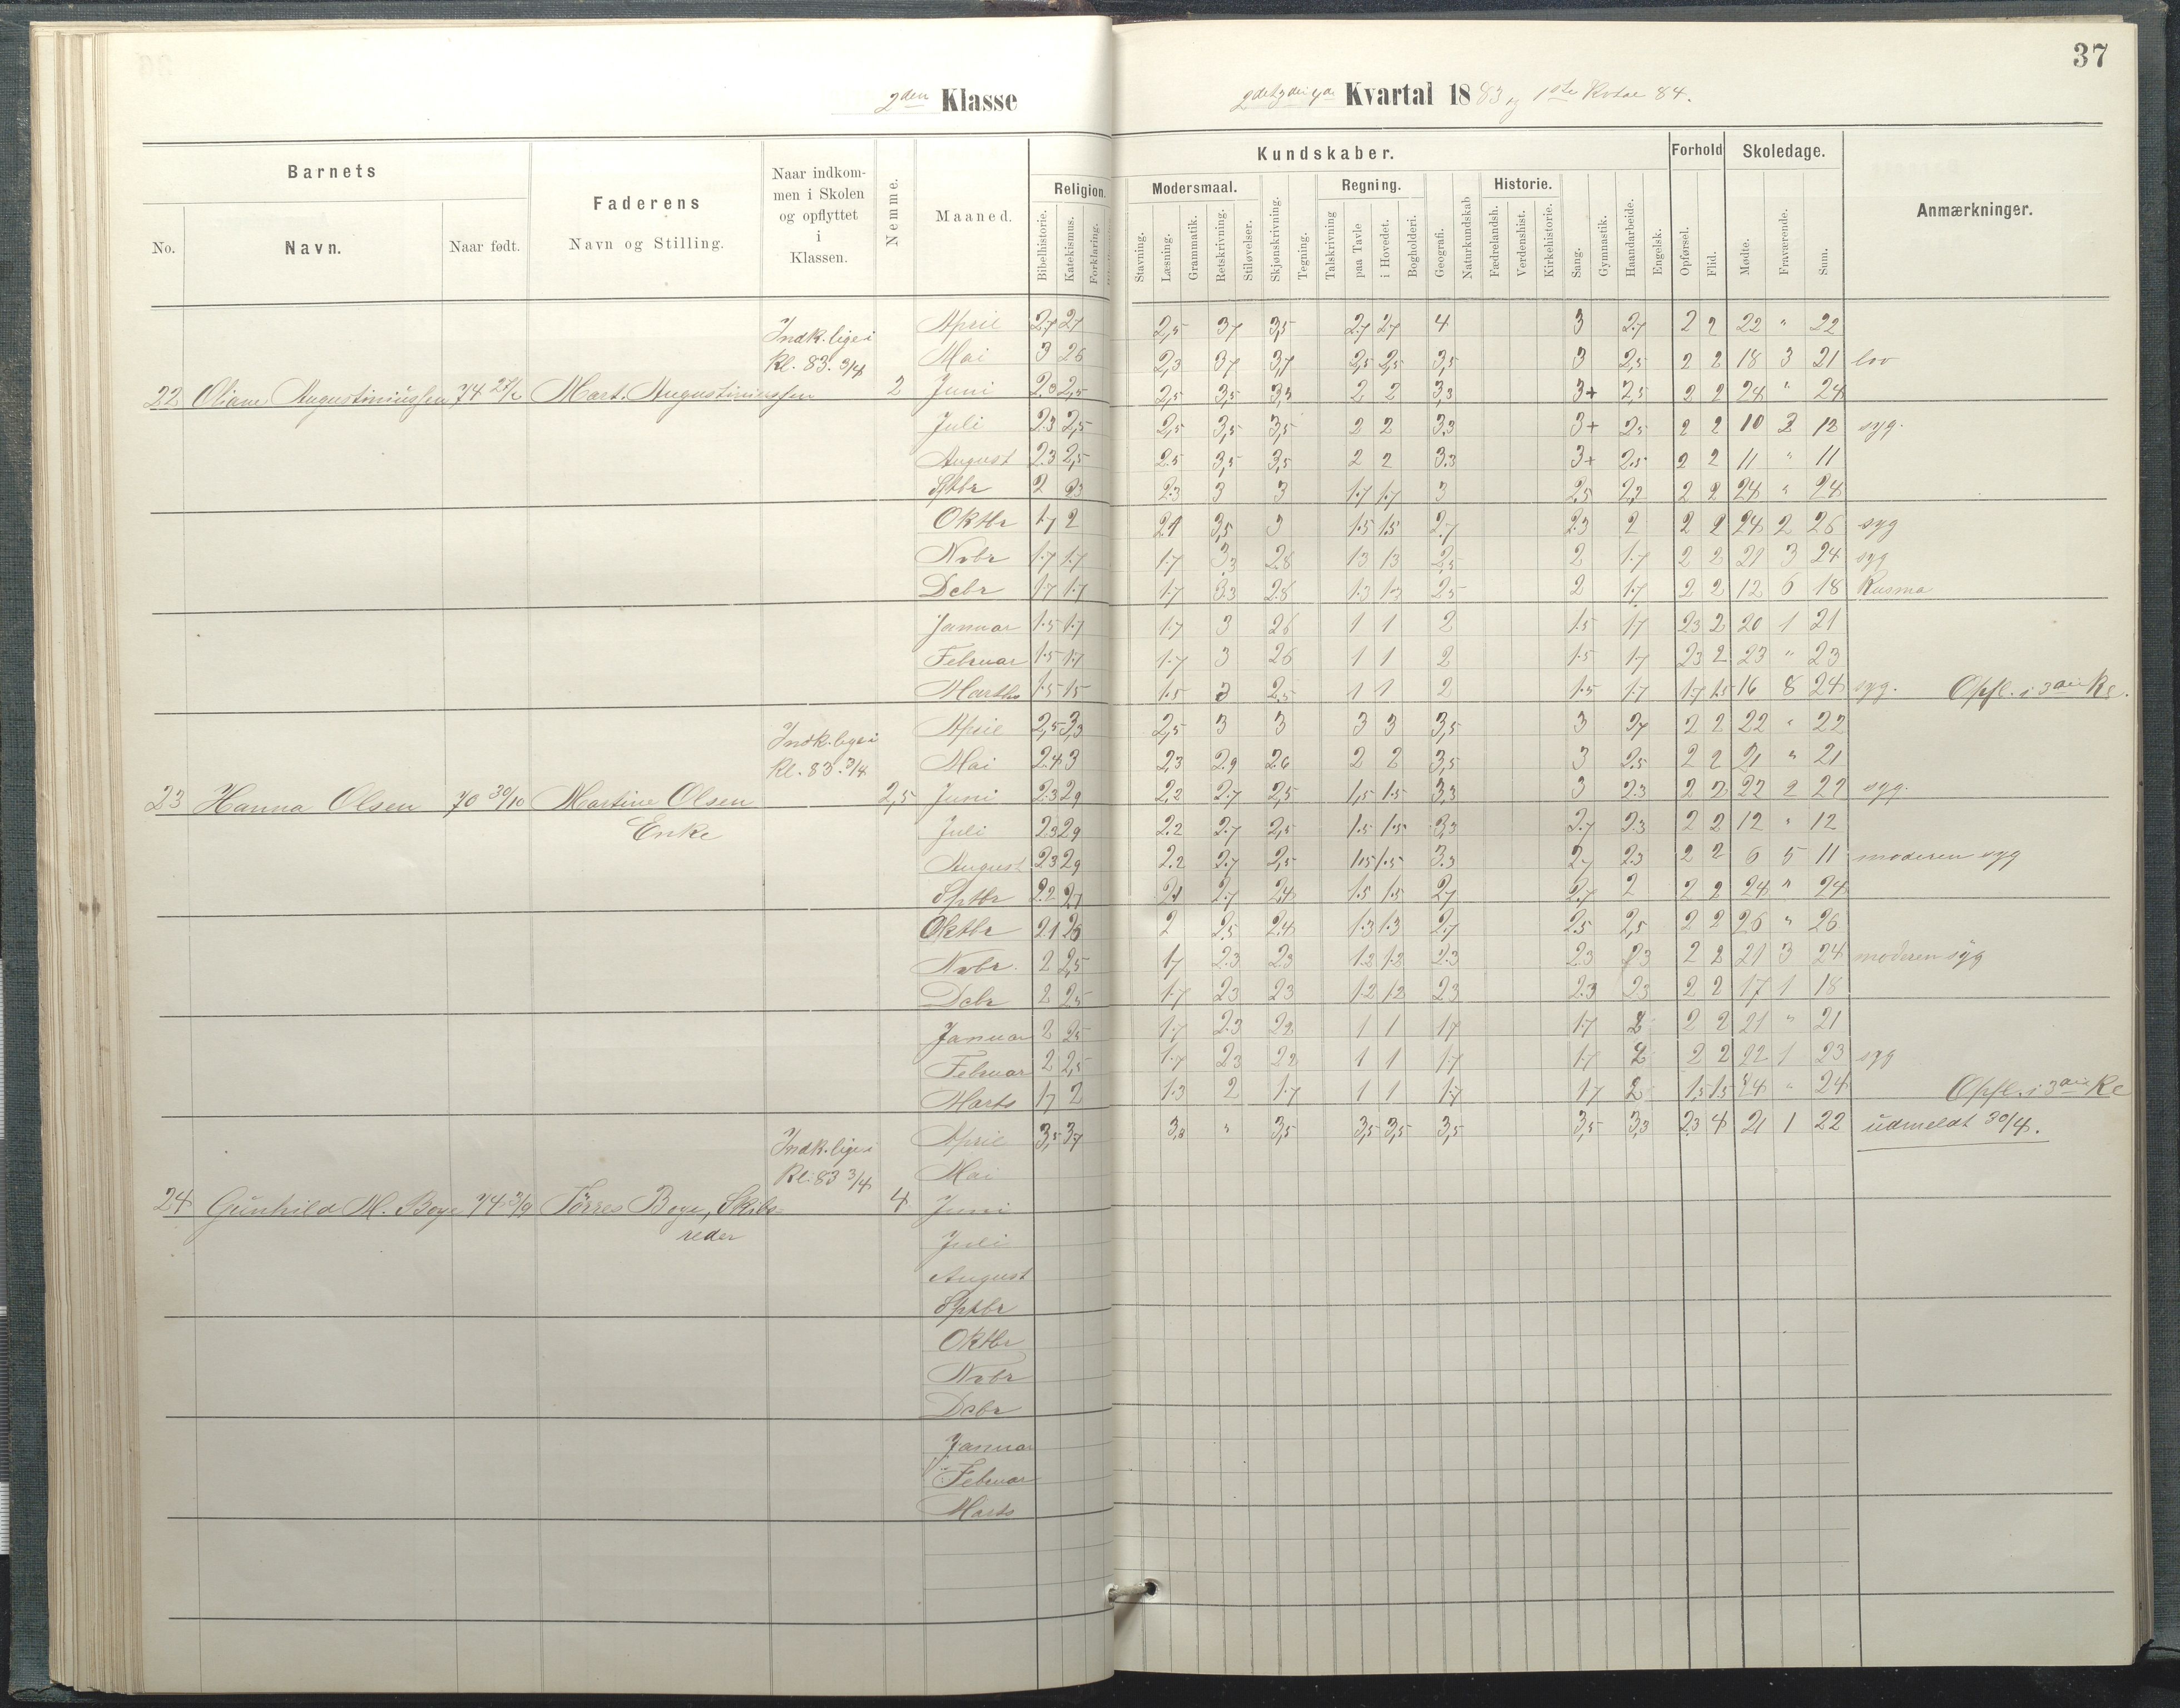 37
2den Klasse
2det 3die 4de Kvartal 1883 og 1ste Kvtal 84.
Barnets
No.
Navn.
Naar født.
Faderens
Navn og Stilling.
Naar indkom-
men i Skolen
og opflyttet
i
Klassen.
Nemme.
Maaned.
Kundskaber.
Religion.
Bibelhistorie.
Katekismus.
Forklaring.
Modersmaal.
Stavning.
Læsning.
Grammatik.
Retskrivning.
Stiløvelser.
Skjønskrivning.
Tegning.
Regning.
Talskrivning
paa Tavle
i Hovedet.
Bogholderi.
Geografi.
Naturkundskab
Historie.
Fædrelandsh.
Verdenshist.
Kirkehistorie.
Sang.
Gymnastik.
Haandarbeide.
Engelsk.
Forhold
Opførsel.
Flid.
Skoledage.
Mødte.
Fraværende.
Sum.
Anmærkninger.
Indk. lige i
Kl. 83. 3/4
22 Oliane Augustiniussen 74 Mart. Augustiniussen 2
April 2.7 2.7 2,5 3.7 3,5 2.7 2.7 4 3 2.7 2 2 22 " 22
Mai 3 2.6 2,3 3.7 3,7 2,5 2,5 3,5 3 2,5 2 2 18 3 21 lov
Juni 2,5 2,5 3,5 3,3 2 2 3,3 3+ 2,5 2 2 24 " 24
Juli 2.3 2,5 2,5 3,5 3,5 2 2 3.3 3+ 2.5 2 2 10 2 12 syg.
August 2.3 2,5 2.5 3,5 3,5 2 2 3.3 3+ 2.5 2 2 11 " 11
Sptbr 2 2.3 2.3 3 3 1.7 1.7 3 2.5 2.2 2 2 24 " 24
Oktbr 1.7 2 2.1 3,5 3 1.5 1.5 2.7 2.3 2 2 2 24 2 26 syg
Nvbr 1.7 1.7 1.7 3.3 2.8 1.3 1.3 2.5 2 1.7 2 2 21 3 24 syg
Dcbr 1.7 1.7 1.7 3.3 2.8 1.3 1.3 2.5 2 1.7 2 2 12 6 18 Kusma
Januar 1.5 1.7 1.7 3 2.6 1 1 2 1.5 1.7 2.3 2 20 1 21
Februar 1.5 1.7 1.7 3 2.6 1 1 2 1.5 1.7 2.3 2 23 " 23
Marts 1.5 1.5 1.5 3 2.5 1 1 2 1.5 1.7 1.7 1.5 16 8 24 syg. Opfl. i 3die Kl.
Indk. lige i
Kl. 83. 3/4
23 Hanna Olsen 70 30/10 Martine Olsen 2,5
Enke
April 2,5 3,3 2,5 3 3 3 3 3,5 3 2.7 2 2 22 " 22
Mai 2.4 3 2,3 2.9 2.6 2 2 3,5 3 2.5 2 2 21 " 21
Juni 2.3 2.9 2,2 2.7 2,5 1,5 1.5 3,3 3 2.3 2 2 syg.
Juli 2.3 2.9 2.2 2.7 2,5 1.5 1.5 3,3 2.7 2.3 2 2 12 " 12
August 2.3 2.9 2.2 2.7 2,5 1.5 1.5 3.3 2.7 2.3 2 2 6 5 11 moderen syg
Sptbr 2.2 2.7 2.1 2.7 2.4 1.5 1.5 2.7 2.7 2 2 2 24 " 24
Oktbr 2.1 2.5 2 2.5 2.4 1.3 1.3 2.7 2.5 2,5 2 2 26 " 26
Nvbr. 2 2.5 1.7 2.3 2.3 1.2 1.2 2.3 2.3 2.3 2 2 21 3 24 moderen syg
Dcbr 2 2.5 1.7 2.3 2.3 1.2 1.2 2.3 2.3 2.3 2 2 17 1 18
Januar 2 2.5 1.7 2.3 2.2 1 1 1.7 1.7 2 2 2 21 " 21
Februar 2 2,5 1.7 2.3 2.2 1 1 1.7 1.7 2 2 2 22 1 23 syg
Marts 1.7 2 1.3 2 1.7 1 1 1.7 1.7 2 1.5 1.5 24 " 24 Opfl. i 3die Kl
Indk. lige i
Kl. 83 3/4
24 Gunhild M. Boye 74 3/9 Törres Boye, Skibs- 4
reder
April 3,5 3.7 " 3,5 3,5 3,5 3,5 3,5 3,3 2.3 4 21 1 22 udmeldt 30/4.
Mai
Juni
Juli
August
Sptbr
Oktbr
Nvbr
Dcbr
Januar
Februar
Marts